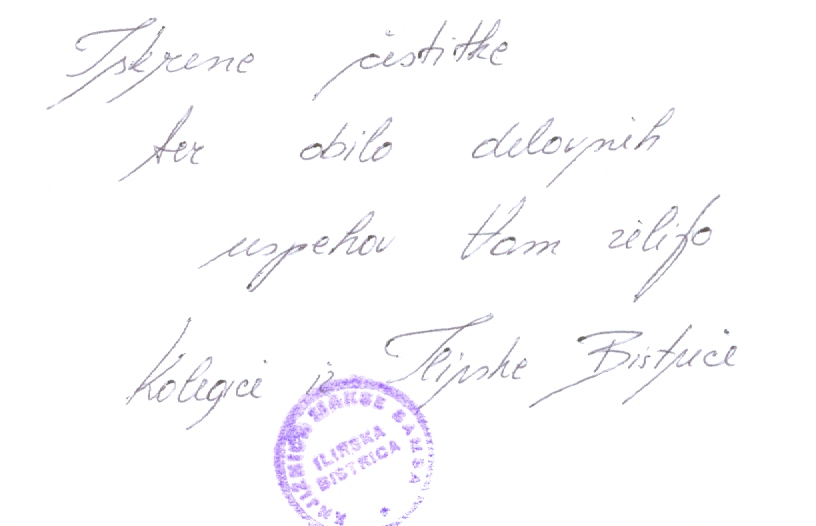 Iskrene čestitke
ter obilo delovnih
uspehov Vam želijo
Kolegice iz Ilirske Bistrice
KNJIŽNICA MAKSE SAMSA
ILIRSKA
BISTRICA